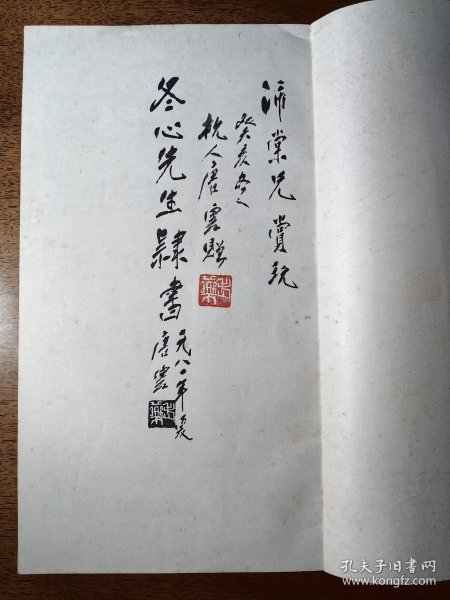 滙棠兄賞玩
癸亥冬
杭人唐雲贈
冬心先生隸書
一九八〇年夏
唐雲
孔夫子旧书网
www.kongfz.com